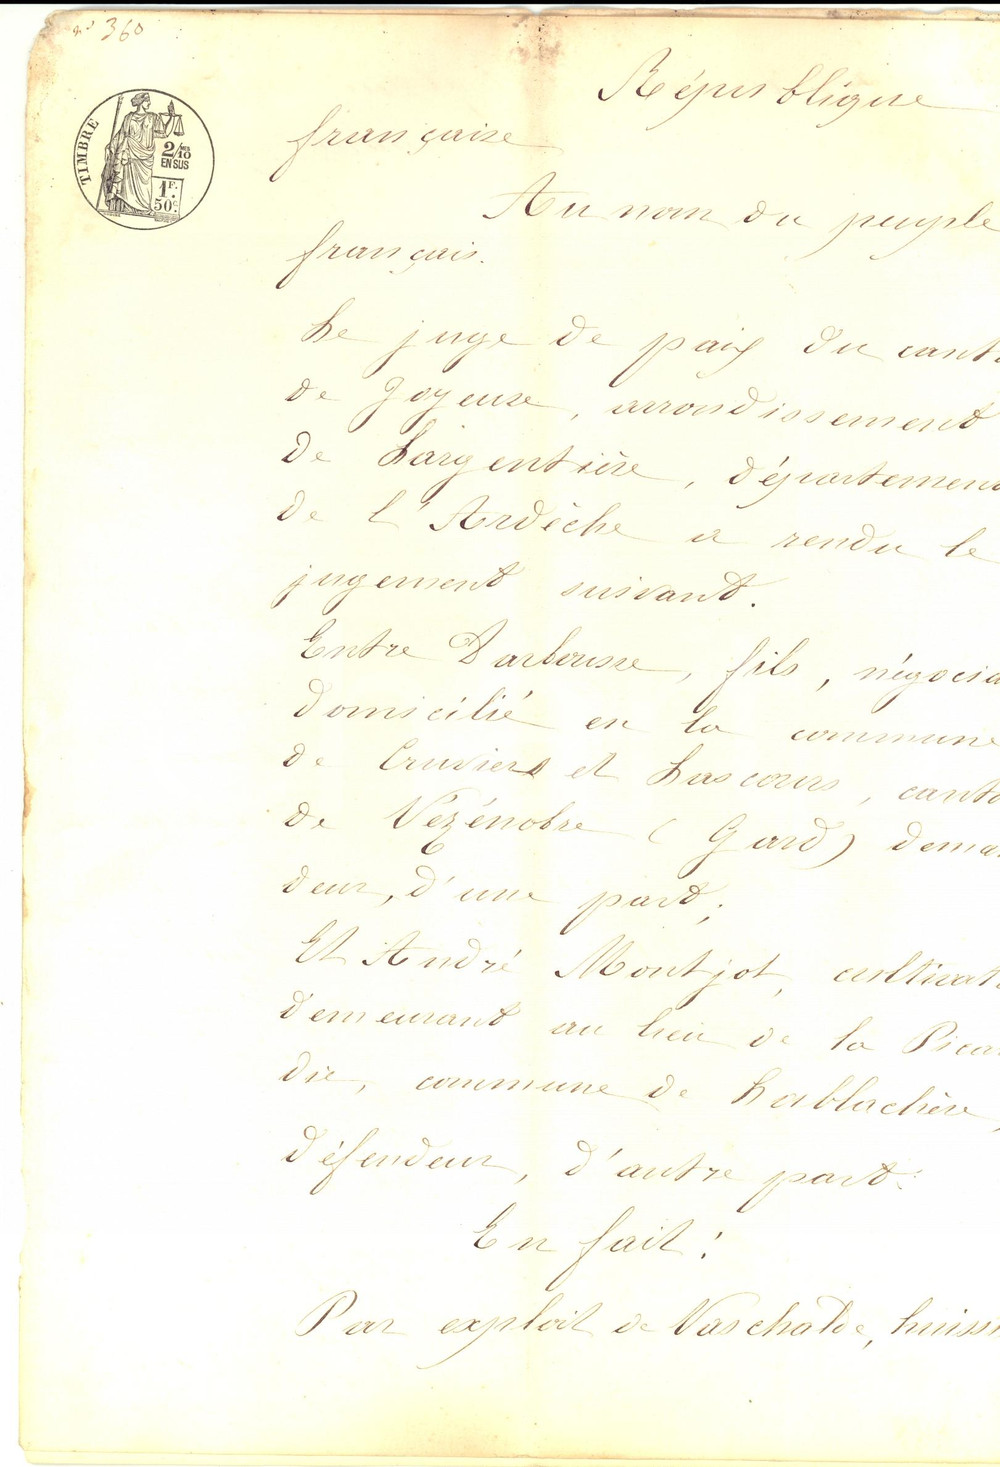 n° 360
TIMBRE
2/10 EN SUS
1F. 50c.
République
française
Au nom du peuple
français.
Le juge de paix du cant
de Joyeuse, arrondissement
de Largentière, département
de l'Ardèche a rendu le
jugement suivant.
Entre Darbousse, fils, négocia
domicilié en la commune
de Cruviers et Lascours, canto
de Vézénobre (Gard) deman
deur, d'une part;
Et André Montjot, cultivat
demeurant au lieu de la Picar
die, commune de Lablachère,
défendeur, d'autre part.
En fait:
Par exploit de Vaschalde, huissi